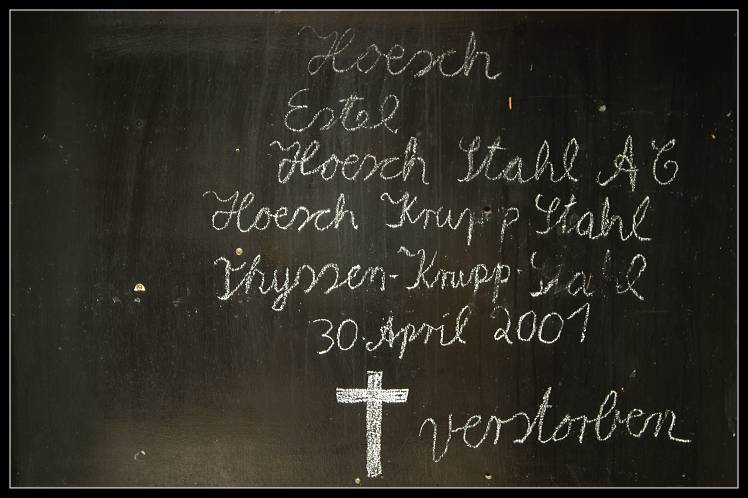 Hoesch
Estel
Hoesch Stahl AG
Hoesch Krupp Stahl
Thyssen-Krupp-Stahl
30. April 2001
verstorben